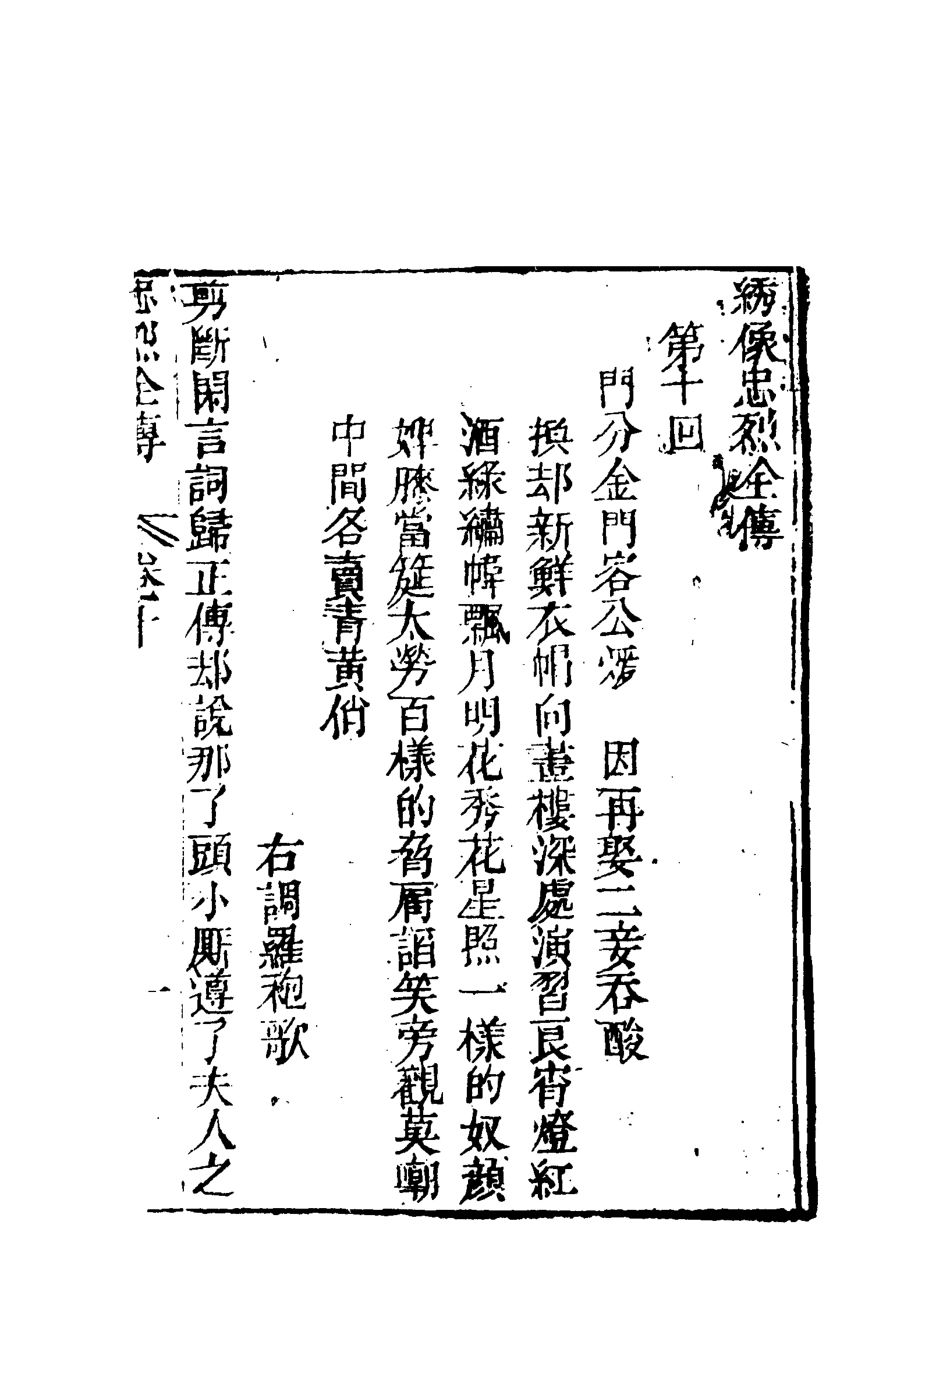 綉像忠烈全傳
第十回
門分金門客公 因再娶二妾吞酸
換却新鮮衣帽向畫樓深處演習良宵燈紅
酒綠繡幃飄月明花秀花星照一樣的奴顔
婢膝當筵太勞百樣的脅肩謟笑旁觀莫嘲
中間各賣青黃俏
右調羅袍歌
剪斷閑言詞歸正傳却說那了頭小厮遵了夫人之
忠烈全傳 卷十 一